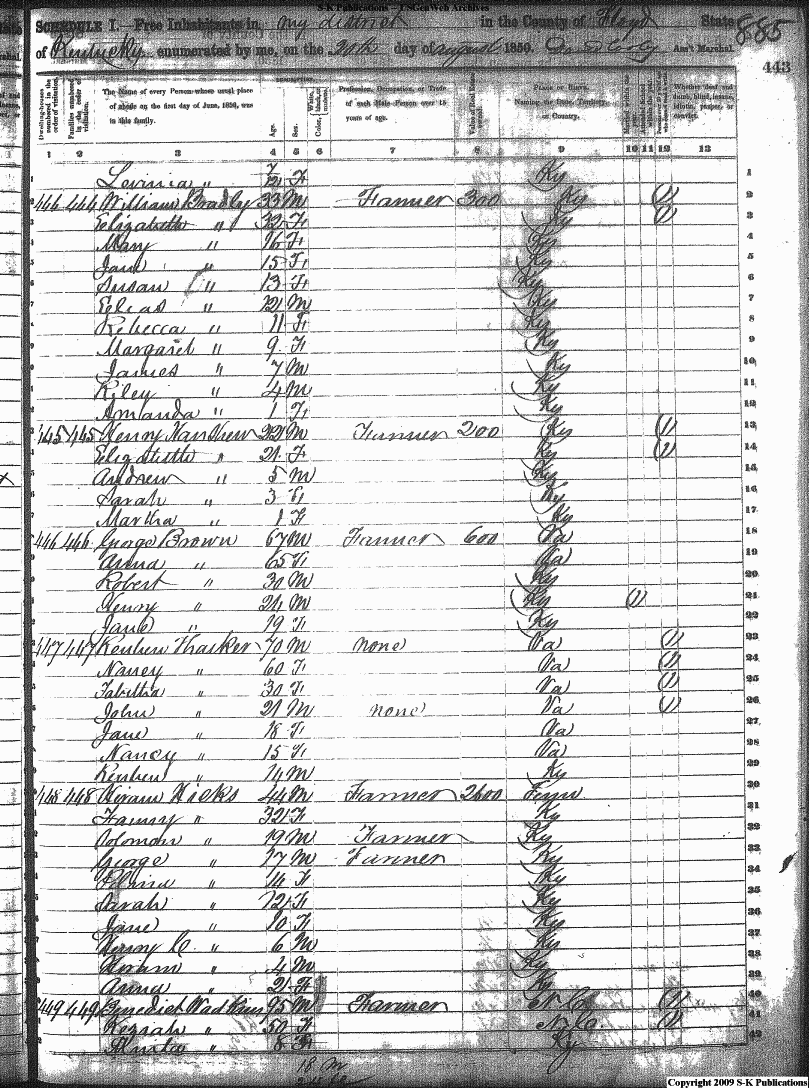 S-K Publications - USGenWeb Archives
SCHEDULE I. Free Inhabitants in my district in the County of Floyd State 885
of Kentucky enumerated by me, on the 20th day of August 1850. Ass't Marshal.
443
Dwelling-houses numbered in the order of visitation. Families numbered in the order of visitation. The Name of every Person whose usual place of abode on the first day of June, 1850, was in this family. Age. Sex. Color, Profession, Occupation, or Trade of each Male Person over 15 years of age. Value of Real Estate owned. Place of Birth. Naming the State, Territory, or Country. Married within the year. Whether deaf and dumb, blind, insane, idiotic, pauper, or convict.
1 2 3 4 5 6 7 8 9 10 11 12 13
Lovinia " F Ky 1
William Bradly 33 M Farmer 300 Ky (1) 2
Elizabeth " 32 F Ky (1) 3
Mary " 16 F Ky 4
Jane " 15 F Ky 5
Susan " 13 F Ky 6
Elias " 12 M Ky 7
Rebecca " 11 F Ky 8
Margaret " 9 F Ky 9
James " 7 M Ky 10
Riley " 4 M Ky 11
Amanda " 1 F Ky 12
445 445 Henry 22 M Farmer 200 Ky (1) 13
Elizabeth " 21 F Ky (1) 14
Andrew " 5 M Ky 15
Sarah " 3 F Ky 16
Martha " 1 F Ky 17
446 446 George Brown 67 M Farmer 600 Va 18
Anna " 65 F Va 19
Robert " 30 M Ky 20
Henry " 24 M Ky (1) 21
Jane " 19 F Ky 22
447 447 Reuben Thacker 70 M none Va (1) 23
Nancy " 60 F Va (1) 24
Tabitha " 30 F Va (1) 25
John " 21 M none Va (1) 26
Jane " 18 F Va 27
Nancy " 15 F Va 28
Reuben " 14 M Ky 29
448 448 Hiram Hicks 44 M Farmer 2600 Tenn 30
Fanny " 32 F Ky 31
Solomon " 19 M Farmer Ky 32
George " 17 M Farmer Ky 33
" 14 F Ky 34
Sarah " 12 F Ky 35
Jane " 10 F Ky 36
Henry C. " 6 M Ky 37
Hiram " 4 M Ky 38
Anna " 2 F Ky 39
449 449 Benedict Wadkins 95 M Farmer N.C. (1) 40
Keziah " 50 F N.C. (1) 41
" 8 F Ky 42
18 M
Copyright 2009 S-K Publications